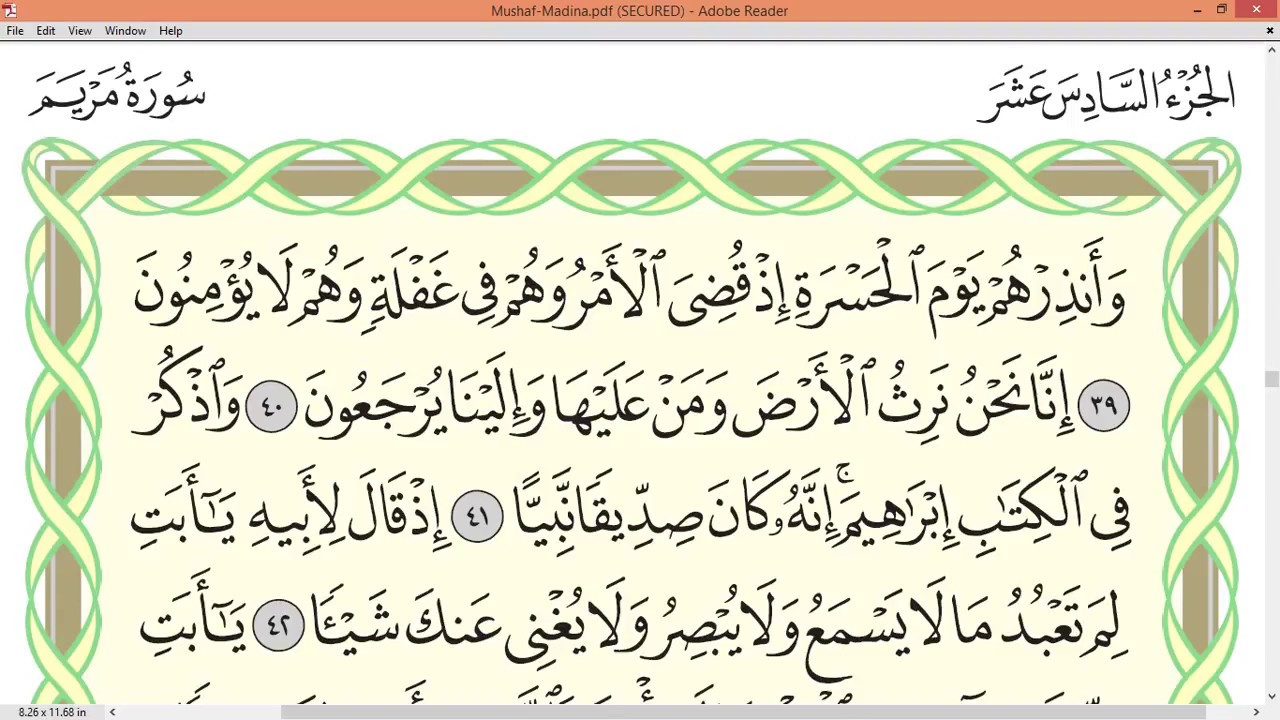 Mushaf-Madina.pdf (SECURED) - Adobe Reader
File Edit View Window Help
الجُزْءُ السَّادِسَ عَشَرَ
سُورَةُ مَرْيَمَ
وَأَنذِرْهُمْ يَوْمَ ٱلْحَسْرَةِ إِذْ قُضِىَ ٱلْأَمْرُ وَهُمْ فِى غَفْلَةٍ وَهُمْ لَا يُؤْمِنُونَ
٣٩ إِنَّا نَحْنُ نَرِثُ ٱلْأَرْضَ وَمَنْ عَلَيْهَا وَإِلَيْنَا يُرْجَعُونَ ٤٠ وَٱذْكُرْ
فِى ٱلْكِتَٰبِ إِبْرَٰهِيمَ ۚ إِنَّهُۥ كَانَ صِدِّيقًا نَّبِيًّا ٤١ إِذْ قَالَ لِأَبِيهِ يَٰٓأَبَتِ
لِمَ تَعْبُدُ مَا لَا يَسْمَعُ وَلَا يُبْصِرُ وَلَا يُغْنِى عَنكَ شَيْـًٔا ٤٢ يَٰٓأَبَتِ
8.26 x 11.68 in